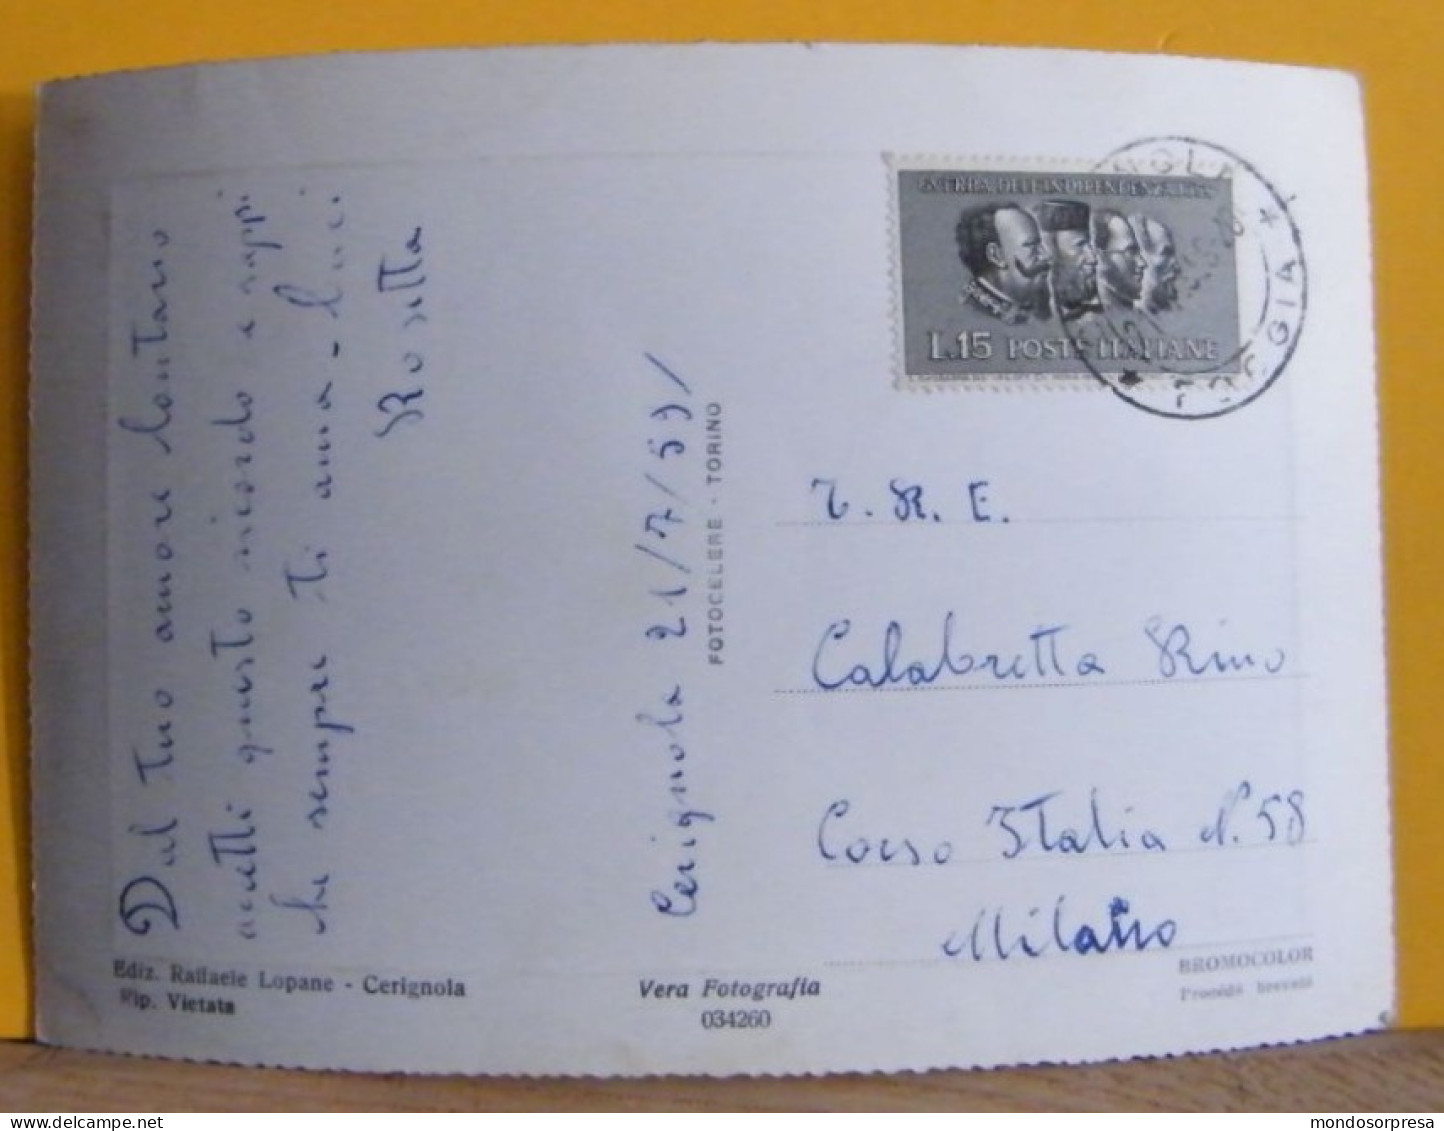 Dal tuo amore lontano
accetti questo ricordo e sappi
che sempre ti ama - baci
Rosetta
Cerignola 21/7/59/
FOTOCELERE - TORINO
GUERRA DELL'INDIPENDENZA
L.15 POSTE ITALIANE
FOGGIA
T. R. E.
Calabretta Rino
Corso Italia N. 58
Milano
Ediz. Raffaele Lopane - Cerignola
Rip. Vietata
Vera Fotografia
034260
BROMOCOLOR
Procédé breveté
mondosorpresa
mondosorpresa.com